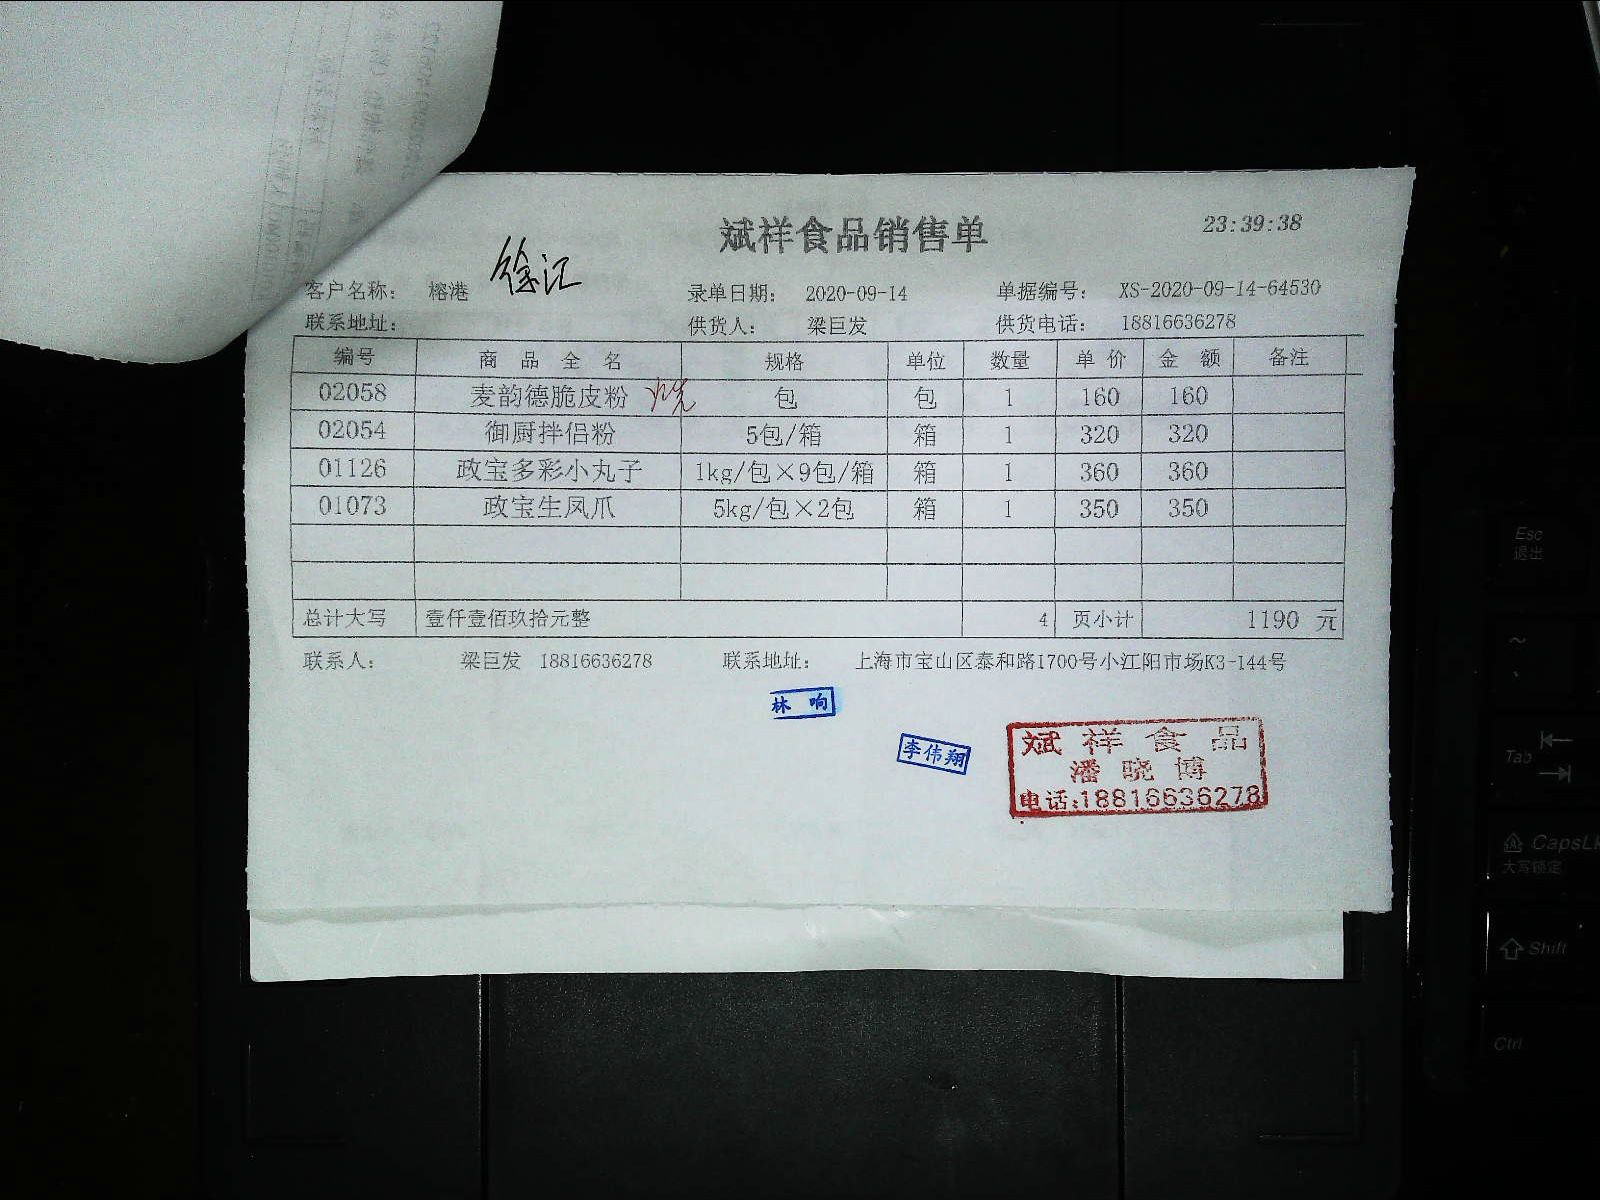 斌祥食品销售单
23:39:38
客户名称： 榕港 徐汇 录单日期： 2020-09-14 单据编号： XS-2020-09-14-64530
联系地址： 供货人： 梁巨发 供货电话： 18816636278
编号 商品全名 规格 单位 数量 单价 金额 备注
02058 麦韵德脆皮粉 烧 包 包 1 160 160
02054 御厨拌侣粉 5包/箱 箱 1 320 320
01126 政宝多彩小丸子 1kg/包×9包/箱 箱 1 360 360
01073 政宝生凤爪 5kg/包×2包 箱 1 350 350
总计大写 壹仟壹佰玖拾元整 4 页小计 1190 元
联系人： 梁巨发 18816636278 联系地址： 上海市宝山区泰和路1700号小江阳市场K3-144号
林响
李伟翔
斌祥食品
潘晓博
电话:18816636278
Esc
退出
~
Tab
CapsLk
大写锁定
Shift
Ctrl